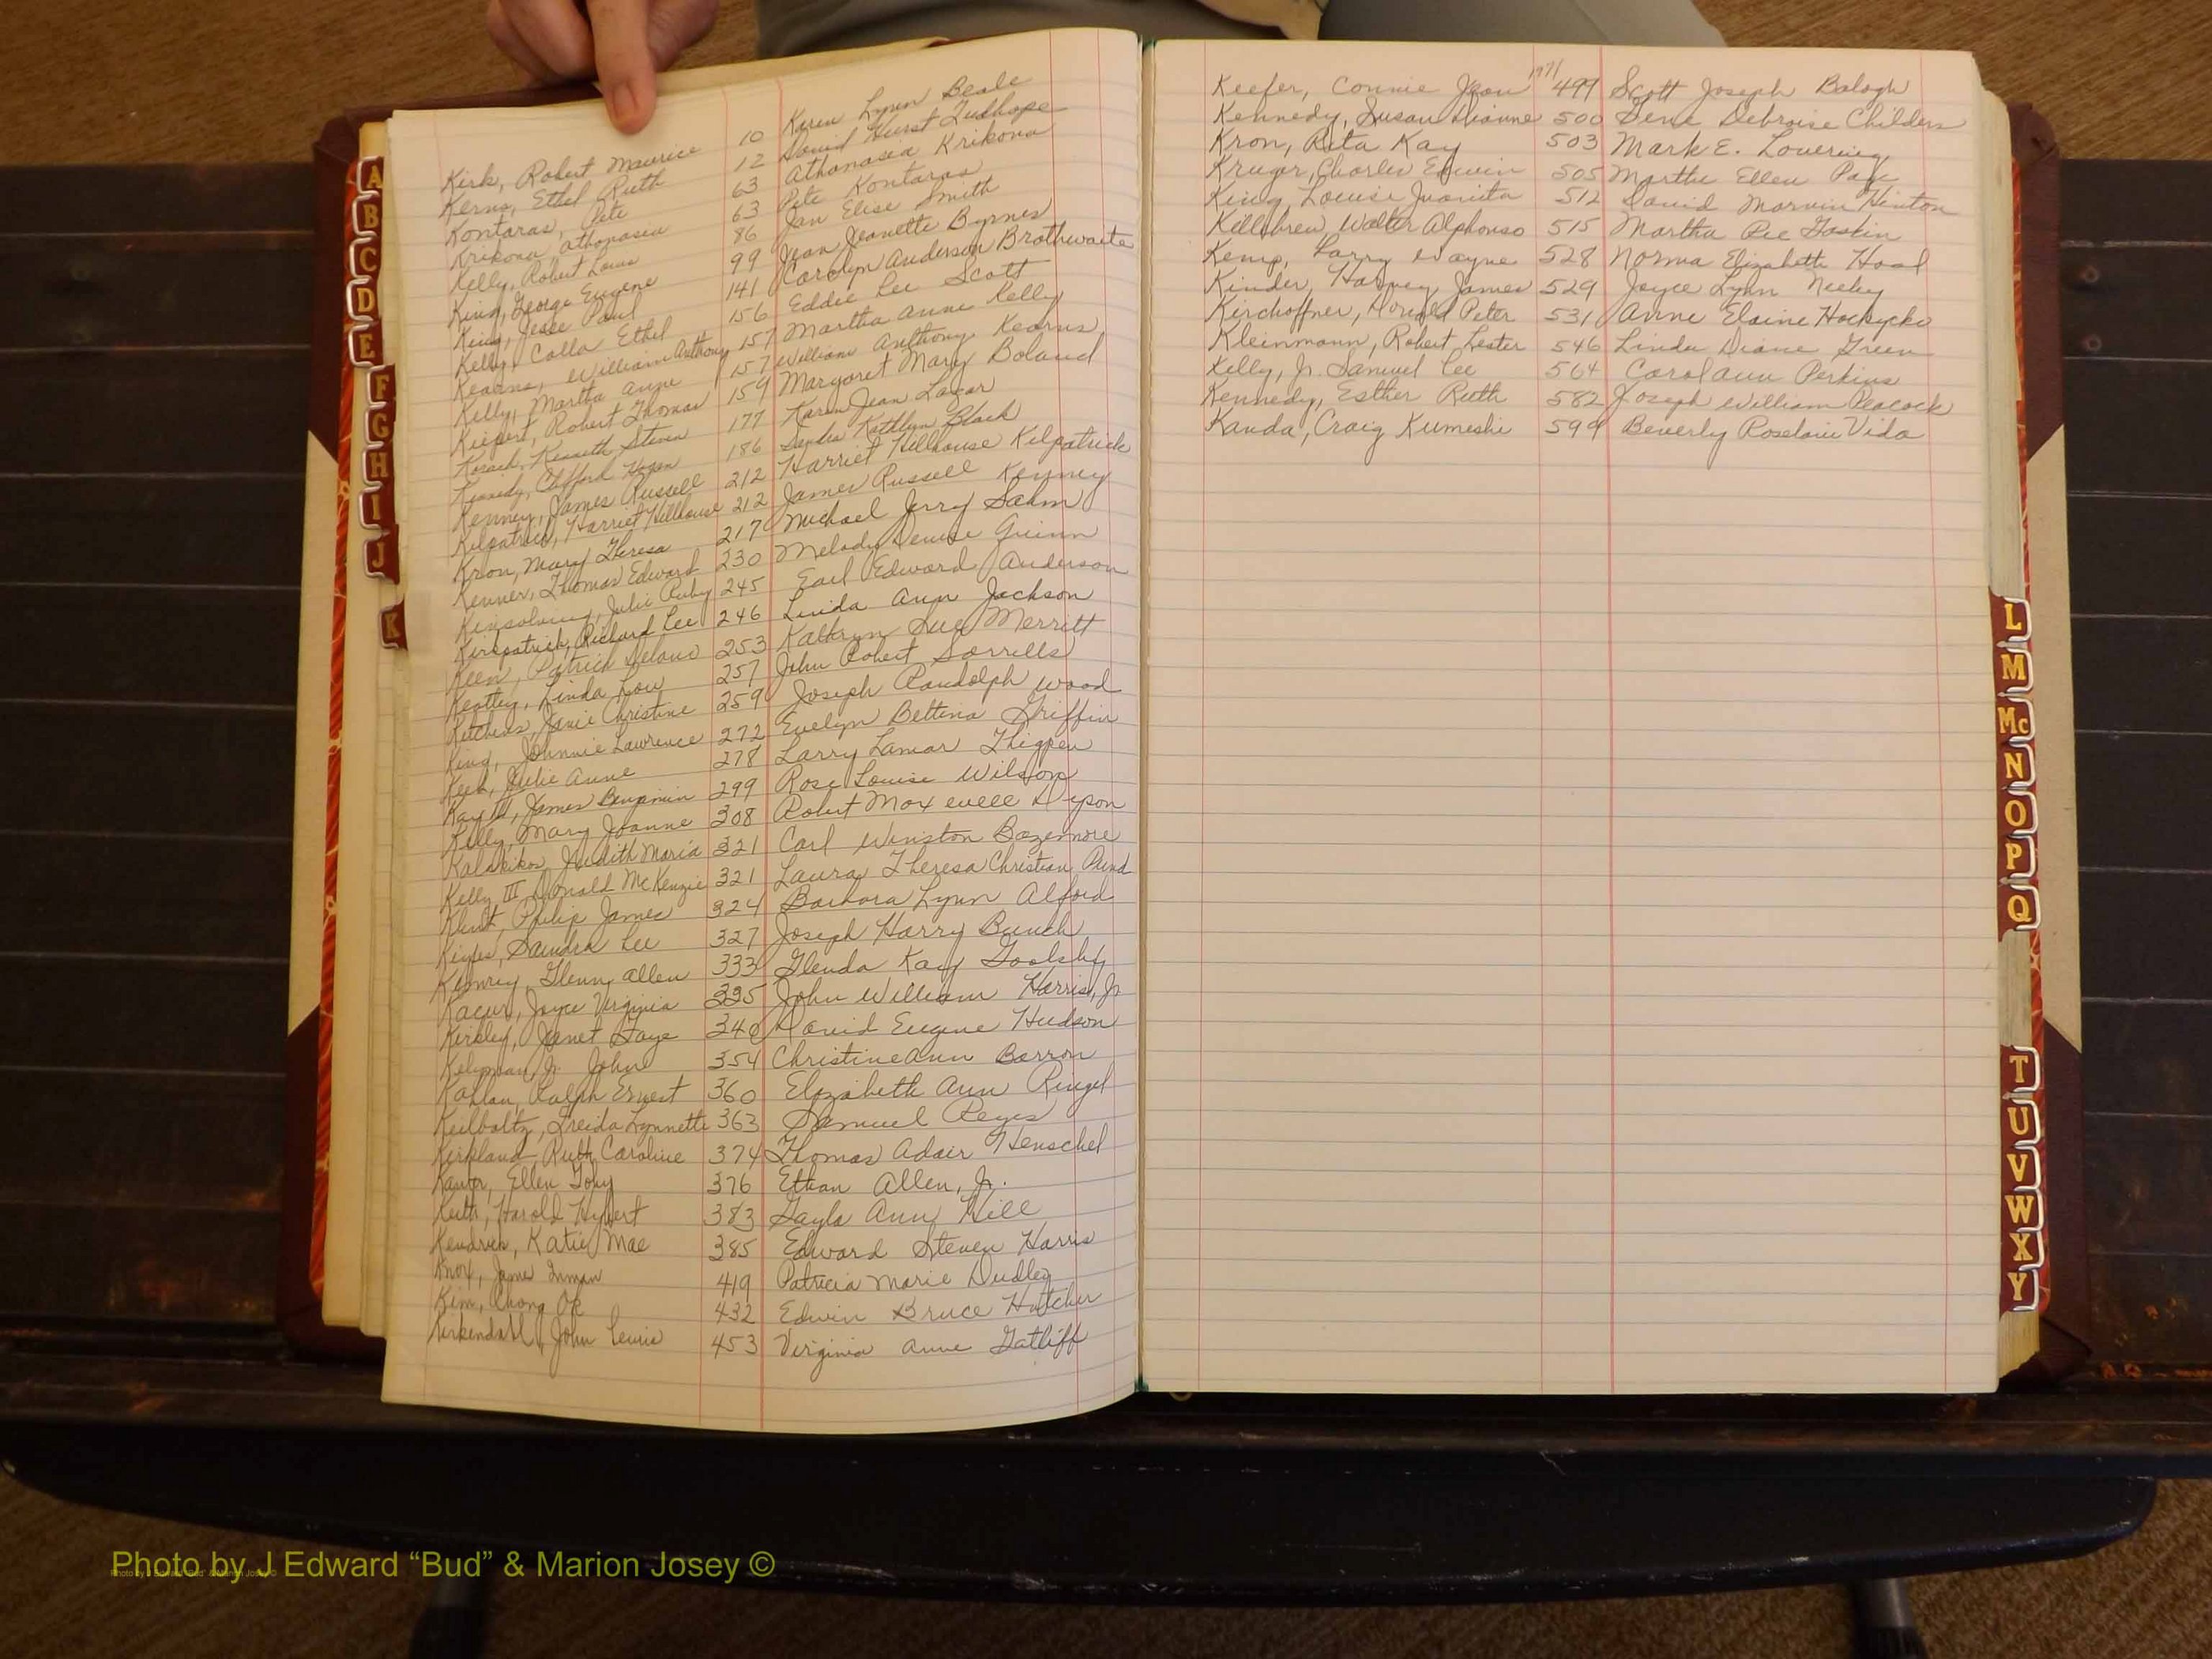 A
B
C
D
E
F
G
H
I
J
K
Kirk, Robert Maurice 10 Karen Lynn Beale
Kerns, Ethel Ruth 12 David Hurst Tudhope
Kontaras, Pete 63 Athanasia Krikona
Krikona, Athanasia 63 Pete Kontaras
Kelly, Robert Louis 86 Jan Elise Smith
King, George Eugene 99 Jean Jeanette Byrnes
King, Jesse Paul 141 Carolyn Anderson Brathwaite
Kelly, Calla Ethel 156 Eddie Lee Scott
Kearns, William Anthony 157 Martha Anne Kelly
Kelly, Martha Anne 157 William Anthony Kearns
Kiepert, Robert Thomas 159 Margaret Mary Boland
Kenneth Steven 177 Karen Jean Lazar
Kennedy, Clifford 186 Sandra Kathlyn Black
Kenney, James Russell 212 Harriet Hillhouse Kilpatrick
Kilpatrick, Harriet Hillhouse 212 James Russell Kenney
Kron, Mary Theresa 217 Michael Jerry Sahm
Kenner, Thomas Edward 230 Melody Denise Guinn
Kinsolving, Julie Ruby 245 Earl Edward Anderson
Kirkpatrick, Richard Lee 246 Linda Ann Jackson
Keen, Patrick Delano 253 Kathryn Sue Merritt
Keatley, Linda Lou 257 John Robert Sorrells
Kitchens, Janie Christine 259 Joseph Randolph Wood
King, Johnnie Lawrence 272 Evelyn Bettina Griffin
Julie Anne 278 Larry Lamar Thigpen
Kay III, James Benjamin 299 Rose Louise Wilson
Kelly, Mary Joanne 308 Robert Maxwell Dyson
Kalakikos, Judith Maria 321 Carl Winston Bazemore
Kelly III Donald McKenzie 321 Laura Theresa Christian Pund
Klint, Philip James 324 Barbara Lynn Alford
Keyes, Sandra Lee 327 Joseph Harry Bunch
Glenn Allen 333 Glenda Kay Goolsby
Kacur, Joyce Virginia 335 John William Harris, Jr
Kirkley, Janet Faye 340 David Eugene Hudson
Jr. John 354 Christine Ann Barron
Kahlan, Ralph Ernest 360 Elizabeth Ann Ringel
Keilholtz, Freida Lynnette 363 Samuel Reyes
Kirkland, Ruth Caroline 374 Thomas Adair Henschel
Kantor, Ellen Toby 376 Ethan Allen, Jr.
Keith, Harold Hubert 383 Gayla Ann Hill
Kendrick, Katie Mae 385 Edward Steven Harris
Knox, James Inman 419 Patricia Marie Dudley
Kim, Chong Ok 432 Edwin Bruce Hatcher
Kirkendall, John Lewis 453 Virginia Anne Gatliff
1971
Keefer, Connie Jean 499 Scott Joseph Balogh
Kennedy, Susan Dianne 500 Gene Debroise Childers
Kron, Rita Kay 503 Mark E. Lovering
Kruger, Charles Edwin 505 Martha Ellen Page
King, Louise Juanita 512 David Marvin Hinton
Killebrew, Walter Alphonso 515 Martha Rie Gaskin
Kemp, Larry Wayne 528 Norma Elizabeth Hood
Kinder, Harvey James 529 Joyce Lynn Neeley
Kirchoffner, Donald Peter 531 Anne Elaine Hockycko
Kleinmann, Robert Lester 546 Linda Diane Green
Kelly, Jr. Samuel Lee 564 Carol Ann Perkins
Kennedy, Esther Ruth 582 Joseph William Peacock
Kanda, Craig Kumeshi 599 Beverly Roselani Vida
L
M
Mc
N
O
P
Q
T
U
V
W
X
Y
Photo by J Edward “Bud” & Marion Josey ©
Photo by J Edward “Bud” & Marion Josey ©